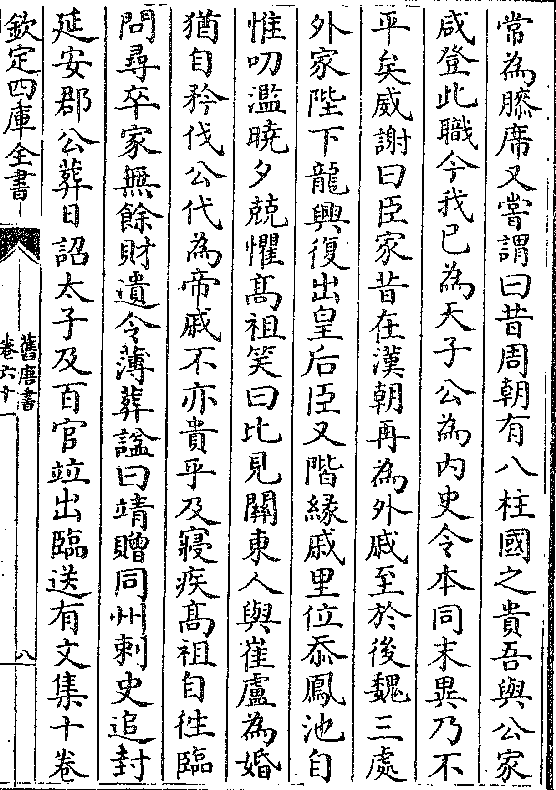 常為膝席又嘗謂曰昔周朝有八柱國之貴吾與公家
咸登此職今我已為天子公為内史令本同末異乃不
平矣威謝曰臣家昔在漢朝再為外戚至於後魏三處
外家陛下龍興復出皇后臣又階緣戚里位忝鳳池自
惟叨濫曉夕兢懼髙祖笑曰比見關東人與崔盧為婚
猶自矜伐公代為帝戚不亦貴乎及寢疾髙祖自徃臨
問尋卒家無餘財遺令薄葬諡曰靖贈同州刺史追封
延安郡公葬日詔太子及百官竝出臨送有文集十卷
欽定四庫全書
舊唐書
卷六十
八